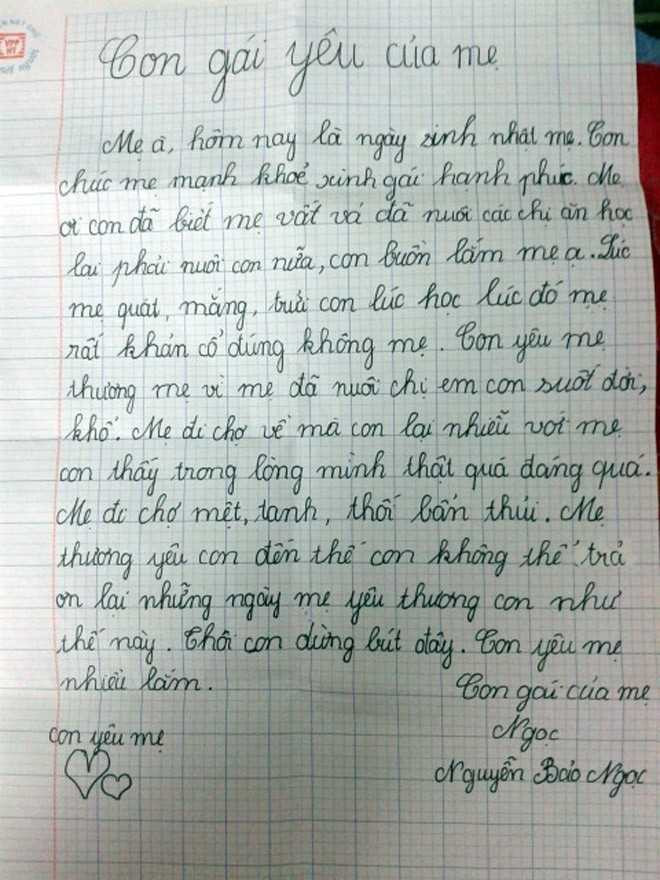 Con gái yêu của mẹ
Mẹ à, hôm nay là ngày sinh nhật mẹ. Con
chúc mẹ mạnh khoẻ xinh gái hạnh phúc. Mẹ
ơi con đã biết mẹ vất vả đã nuôi các chị ăn học
lại phải nuôi con nữa, con buồn lắm mẹ ạ. Lúc
mẹ quát, mắng, trửi con lúc học lúc đó mẹ
rất khản cổ đúng không mẹ. Con yêu mẹ
thương mẹ vì mẹ đã nuôi chị em con suốt đời,
khổ. Mẹ đi chợ về mà con lại nhiễu với mẹ
con thấy trong lòng mình thật quá đáng quá.
Mẹ đi chợ mệt, tanh, thối bẩn thỉu. Mẹ
thương yêu con đến thế con không thể trả
ơn lại những ngày mẹ yêu thương con như
thế này. Thôi con dừng bút đây. Con yêu mẹ
nhiều lắm.
Con gái của mẹ
con yêu mẹ
Ngọc
Nguyễn Bảo Ngọc